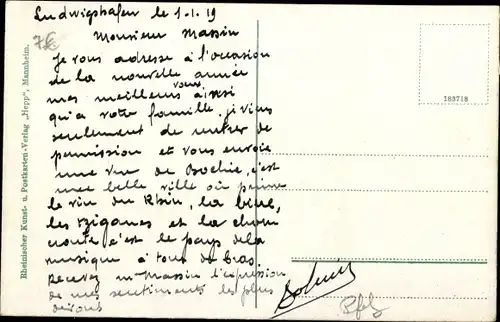 Ludwigshafen le 1-1. 19
Monsieur Massin
7€
Je vous adresse à l'occasion
de la nouvelle année
mes meilleurs vœux ainsi
qu'a votre famille, je viens
seulement de rentrer de
permission et vous envoie
une vue de Bochie, c'est
une belle ville où
le vin du Rhin, la bière,
les tziganes et la chou
croute c'est le pays de la
musique à tour de bras.
Recevez Mr Massin l'expression
de mes sentiments les plus
dévoués
Pflz
183718
Rheinischer Kunst- u. Postkarten-Verlag „Hepp", Mannheim.